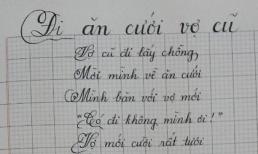 Đi ăn cưới vợ cũ
Vợ cũ đi lấy chồng
Mời mình về ăn cưới
Mình bàn với vợ mới
"Có đi không mình ơi!"
Vợ mới cười rất tươi